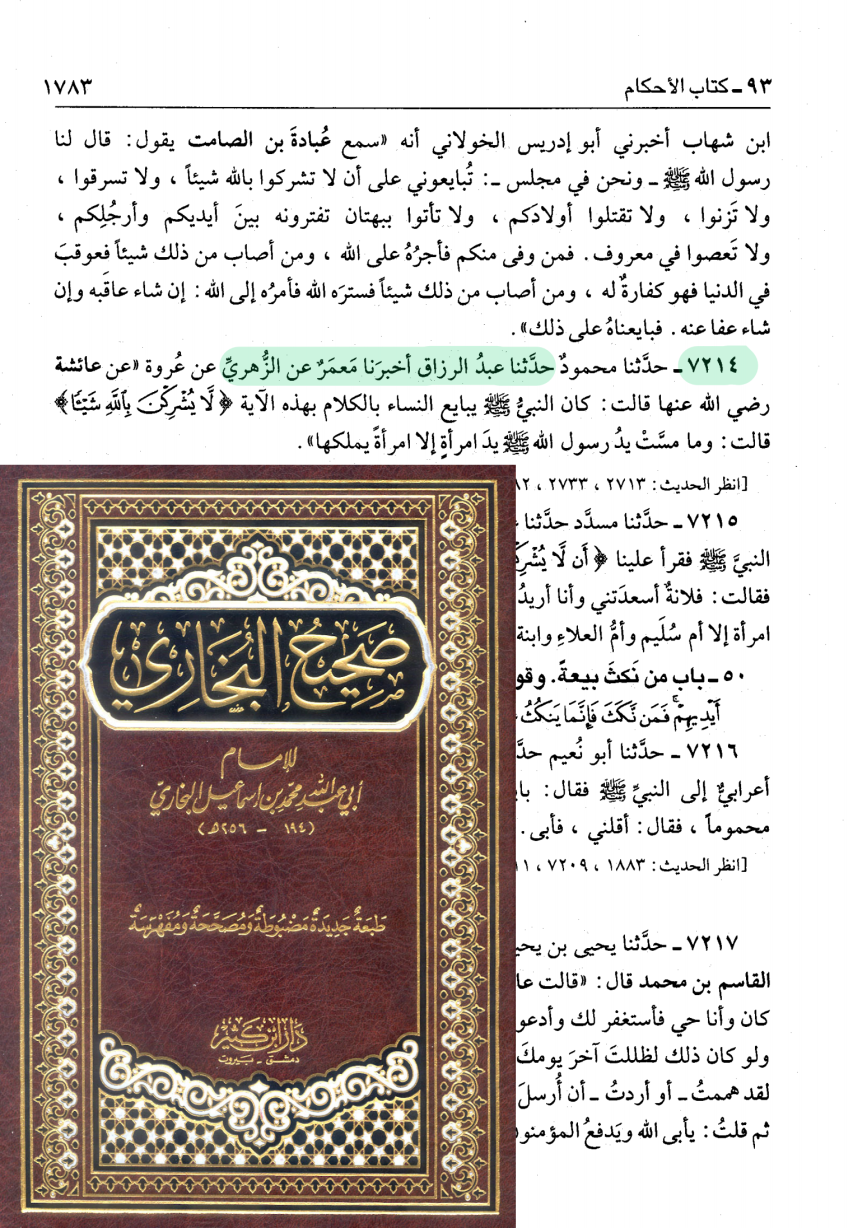 ٩٣ ـ كتاب الأحكام ١٧٨٣
ابن شهاب أخبرني أبو إدريس الخولاني أنه «سمع عُبادةَ بن الصامت يقول: قال لنا
رسول الله ﷺ ـ ونحن في مجلس ـ: تُبايعوني على أن لا تشركوا بالله شيئاً ، ولا تسرقوا ،
ولا تَزنوا ، ولا تقتلوا أولادَكم ، ولا تأتوا ببهتان تفترونه بينَ أيديكم وأرجُلِكم ،
ولا تَعصوا في معروف. فمن وفى منكم فأجرُهُ على الله ، ومن أصاب من ذلك شيئاً فعوقبَ
في الدنيا فهو كفارةٌ له ، ومن أصاب من ذلك شيئاً فسترَه الله فأمرُه إلى الله: إن شاء عاقَبه وإن
شاء عفا عنه. فبايعناهُ على ذلك».
٧٢١٤ ـ حدَّثنا محمودٌ حدَّثنا عبدُ الرزاق أخبرَنا مَعمَرٌ عن الزُّهريِّ عن عُروة «عن عائشة
رضي الله عنها قالت: كان النبيُّ ﷺ يبايع النساء بالكلام بهذه الآية ﴿لَّا يُشْرِكْنَ بِٱللَّهِ شَيْئًا﴾
قالت: وما مسَّتْ يدُ رسول الله ﷺ يدَ امرأةٍ إلا امرأةً يملكها».
[انظر الحديث: ٢٧١٣ ، ٢٧٣٣ ،
٧٢١٥ ـ حدَّثنا مسدَّد حدَّثنا
النبيَّ ﷺ فقرأ علينا ﴿أَن لَّا
فقالت: فلانةٌ أسعدَتني وأنا أريدُ
امرأة إلا أم سُلَيم وأمُّ العلاءِ وابنة
٥٠ ـ باب من نَكثَ بيعةً. وقو
أَيْدِيهِمْ ۚ فَمَن نَّكَثَ فَإِنَّمَا يَنكُثُ
٧٢١٦ ـ حدَّثنا أبو نُعيم حدَّ
أعرابيٌّ إلى النبيِّ ﷺ فقال:
محموماً ، فقال: أقلني ، فأبى.
[انظر الحديث: ١٨٨٣ ، ٧٢٠٩ ،
٧٢١٧ ـ حدَّثنا يحيى بن يحي
القاسم بن محمد قال: «قالت عا
كان وأنا حي فأستغفر لك وأدعو
ولو كان ذلك لظللتَ آخرَ يومكَ
لقد هممتُ ـ أو أردتُ ـ أن أُرسلَ
ثم قلتُ: يأبى الله ويَدفعُ المؤمنو
صَحِيحُ البُخَارِي
للإمام
أبي عبد الله محمد بن اسماعيل البخاري
(١٩٤ - ٢٥٦هـ)
طَبعَةٌ جَدِيدَةٌ مَضْبُوطَةٌ وَمُصَحَّحَةٌ وَمُفَهْرَسَةٌ
دَارُ ابْن كَثِير
دمشق - بيروت